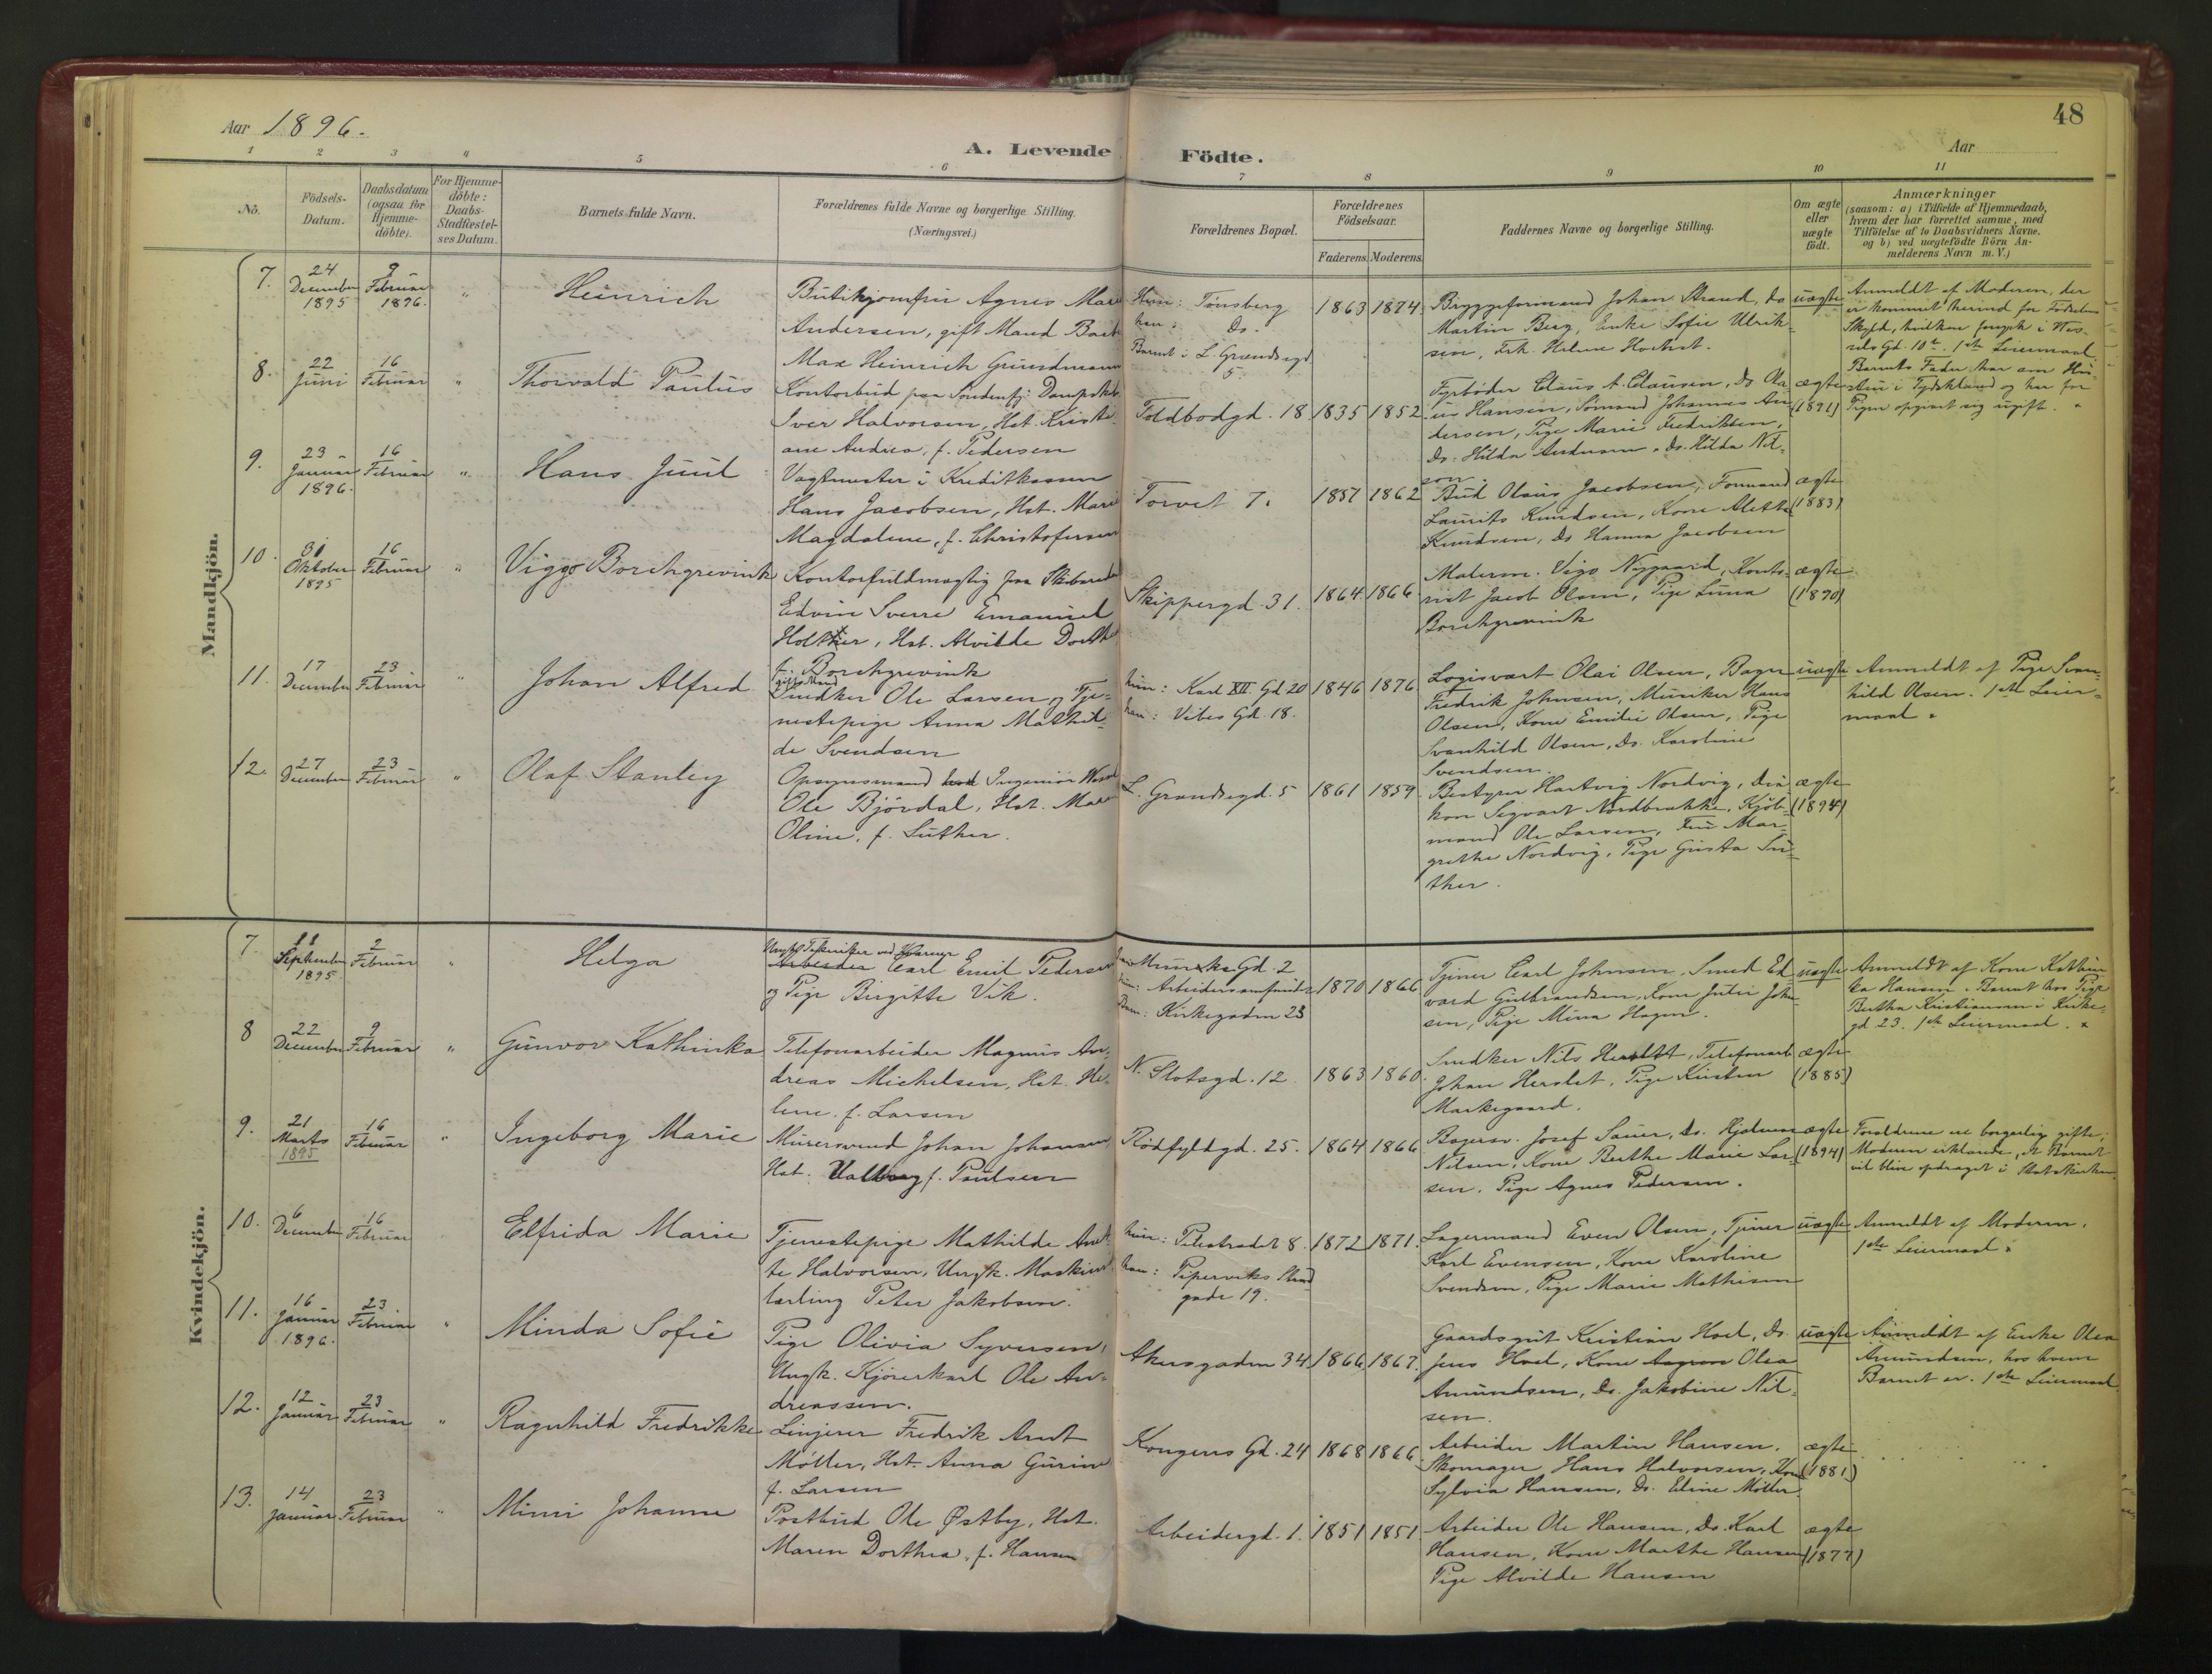 48
Aar 1896.
A. Levende Födte.
Aar
1 2 3 4 5 6 7 8 9 10 11
No.
Födsels-
Datum.
Daabsdatum
(ogsaa for
Hjemme-
döbte).
For Hjemme-
döbte:
Daabs-
Stadfæstel-
ses Datum.
Barnets fulde Navn.
Forældrenes fulde Navne og borgerlige Stilling.
(Næringsvei.)
Forældrenes Bopæl.
Forældrenes
Födselsaar.
Faderens. Moderens.
Faddernes Navne og borgerlige Stilling.
Om ægte
eller
uægte
födt.
Anmærkninger
(saasom: a) i Tilfælde af Hjemmedaab,
hvem der har forrettet samme, med
Tilföielse af to Daabsvidners Navne.
og b) ved uægtefödte Börn An-
melderens Navn m. V.)
Mandkjön.
7.
24
December
1895
9
Februar
1896.
"
Heinrich
Butikjomfru Agnes Marie
Andersen, gift Mand
Max Heinrich Grundmann
Hun: Tønsberg
han: Ds.
Barnet i L. Grændsegd
5.
1863 1874
Bryggeformand Johan Strand, Ds
Martin Berg, Enke Sofie Ulrik-
sen, Frk. Helene
uægte
Anmeldt af Moderen, der
er kommet herind for Fødselens
Skyld, hvilken foregik i
Gd. 10. 1ste Leiermaal.
Barnets Fader har en Hu-
stru i Tydskland og har for
Pigen opgivet sig ugift.
8.
22
Juni
16
Februar
"
Thorvald Paulus
Kontorbud paa Söndenfj. Dampskb.
Iver Halvorsen, Hst. Kristi-
ane Andrea, f. Pedersen
Toldbodgd. 18
1835 1852
Fyrbøder Claus A. Clausen, Ds Ola-
us Hansen, Sømand Johannes An-
dersen, Pige Marie Fredriksen,
Ds. Hilda Andersen, Ds. Hilda Nil-
sen.
ægte
(1891)
9.
23
Januar
1896.
16
Februar
"
Hans Juul
Vagtmester i Kreditkassen
Hans Jacobsen, Hst. Marie
Magdalene, f. Christofersen
Torvet 7.
1857 1862
Bud Olaus Jacobsen, Formand
Laurits Knudsen, Kone Alette
Knudsen, Ds Hanna Jacobsen
ægte
(1883)
10.
31
Oktober
1895
16
Februar
"
Viggo Borchgrevink
Kontorfuldmægtig paa
Edvin Sverre Emanuel
Holther, Hst. Alvilde Dorthe
f. Borchgrevink
Skippergd. 31.
1864 1866
Malersv. Vigo Nygaard, Konto-
rist Jacob Olsen, Pige
Borchgrevink
ægte
(1890)
11.
17
December
23
Februar
"
Johan Alfred
gift Mand
Snedker Ole Larsen og Tje-
nestepige Anna Mathil-
de Svendsen
hun: Karl XII Gd 20
han: Vibes Gd. 18.
1846 1876
Logisvært Olai Olsen, Bager
Fredrik Johnsen, Musiker Hans
Olsen, Kone Emilie Olsen, Pige
Svanhild Olsen, Ds. Karoline
Svendsen.
uægte
Anmeldt af Pige Svan-
hild Olsen. 1ste Leier-
maal.
12.
27
December
23
Februar
"
Olaf Stanley
Opsynsmand hos Ingeniør
Ole Björdal, Hst. Maren
Oline, f. Luther.
L. Grændsegd. 5
1861 1859
Bestyrer Hartvig Nordvig, Dia-
kon Sigvart Nordbrække, Kjøb-
mand Ole Larsen, Fru Mar-
grethe Nordvig, Pige Gusta Lu-
ther.
ægte
(1894)
Kvindekjön.
7.
11
September
1895
2
Februar
"
Helga
Ungk. Tekniker ved
Arbeider Carl Emil Pedersen
og Pige Birgitte Vik.
Munke Gd. 2
hun: Arbeidersamfundets
Barn: Kirkegaden 23
1870 1866
Tjener Carl Johnsen, Smed Ed-
vard Gulbrandsen, Kone Julie John-
sen, Pige Mina Hagen.
uægte
Anmeldt af Kone Kathin-
ka Hansen. Barnet hos Pige
Bertha Kristiansen i Kirke-
gd 23. 1ste Leiermaal.
8
22
December
9
Februar
"
Gunvor Kathinka
Telefonarbeider Magnus An-
dreas Michelsen, Hst. He-
lene, f. Larsen
N. Slotsgd. 12.
1863 1860
Snedker Nils Herslet, Telefonarb.
Johan Herslet, Pige Kirsten
Markegaard.
ægte
(1885)
9.
21
Marts
1895
16
Februar
"
Ingeborg Marie
Murersvend Johan Johansen,
Hst. Valborg f. Paulsen
Rødfyldgd. 25.
1864 1866
Bagersv. Josef Sauer, Ds. Hjalmar
Nilsen, Kone Berthe Marie Lar-
sen, Pige Agnes Pedersen.
ægte
(1894)
Forældrene ere borgerlig gifte;
Moderen erklærede, at Barnet
vil blive opdraget i Statskirken.
10.
6
December
16
Februar
Elfrida Marie
Tjenestepige Mathilde
Halvorsen, Ungk. Maskin-
lærling Peter Jakobsen.
hun: Pilestrædet 8.
han: Piperviks Strand-
gade 19.
1872 1871.
Lagermand Even Olsen, Tjener
Karl Evensen, Kone Karoline
Svendsen, Pige Marie Mathisen
uægte
Anmeldt af Moderen.
1ste Leiermaal.
11.
16
Januar
1896.
23
Februar
"
Minda Sofie
Pige Olivia Syversen,
Ungk. Kjørerkarl Ole An-
dreassen.
Akersgaden 34
1866 1867.
Gaardsgut Kristian Hoel, Ds.
Jens Hoel, Kone Olea
Amundsen, Ds. Jakobine Nil-
sen.
uægte
Anmeldt af Enke Olea
Amundsen, hos hvem
Barnet er. 1ste Leiermaal.
12.
12
Januar
23
Februar
"
Ragnhild Fredrikke
Linjerer Fredrik Arnt
Møller, Hst. Anna Gurine
f. Larsen
Kongens Gd. 24
1868 1866
Arbeider Martin Hansen.
Skomager Hans Halvorsen, Kone
Sylvia Hansen, Ds. Eline Møller.
ægte
(1881)
13.
14
Januar
23
Februar
"
Mimi Johanne
Postbud Ole Østby, Hst.
Maren Dorthea, f. Hansen
Arbeidergd. 1.
1851 1851
Arbeider Ole Hansen, Ds. Karl
Hansen, Kone Marthe Hansen
Pige Alvilde Hansen
ægte
(1877)